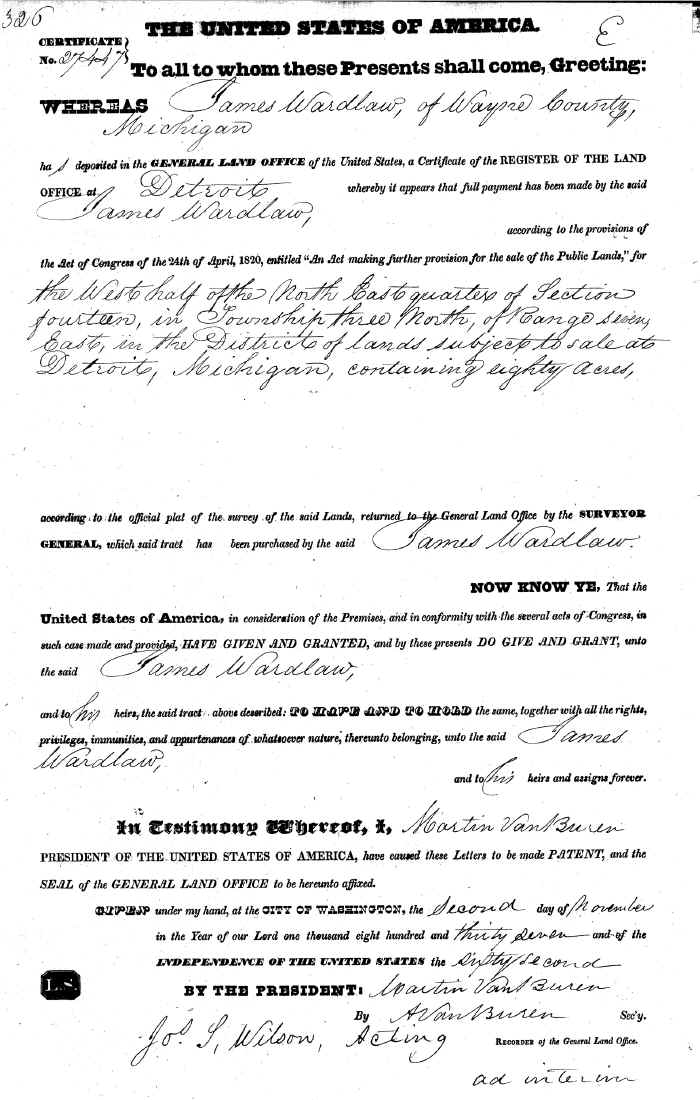 326
THE UNITED STATES OF AMERICA.
E
CERTIFICATE
No. 27447
To all to whom these Presents shall come, Greeting:
WHEREAS James Wardlaw, of Wayne County,
Michigan
has deposited in the GENERAL LAND OFFICE of the United States, a Certificate of the REGISTER OF THE LAND
OFFICE at Detroit whereby it appears that full payment has been made by the said
James Wardlaw,
according to the provisions of
the Act of Congress of the 24th of April, 1820, entitled "An Act making further provision for the sale of the Public Lands," for
the West half of the North East quarter of Section
fourteen, in Township three North, of Range seven,
East, in the District of lands subject to sale at
Detroit, Michigan, containing eighty acres,
according to the official plat of the survey of the said Lands, returned to the General Land Office by the SURVEYOR
GENERAL, which said tract has been purchased by the said James Wardlaw.
NOW KNOW YE, That the
United States of America, in consideration of the Premises, and in conformity with the several acts of Congress, in
such case made and provided, HAVE GIVEN AND GRANTED, and by these presents DO GIVE AND GRANT, unto
the said James Wardlaw,
and to his heirs, the said tract above described: TO HAVE AND TO HOLD the same, together with all the rights,
privileges, immunities, and appurtenances of whatsoever nature, thereunto belonging, unto the said James
Wardlaw,
and to his heirs and assigns forever.
In Testimony Whereof, I, Martin Van Buren
PRESIDENT OF THE UNITED STATES OF AMERICA, have caused these Letters to be made PATENT, and the
SEAL of the GENERAL LAND OFFICE to be hereunto affixed.
GIVEN under my hand, at the CITY OF WASHINGTON, the Second day of November
in the Year of our Lord one thousand eight hundred and thirty seven and of the
INDEPENDENCE OF THE UNITED STATES the Sixty second
L.S.
BY THE PRESIDENT: Martin Van Buren
By A Van Buren Sec'y.
Jos. S. Wilson, Acting RECORDER of the General Land Office.
ad interim